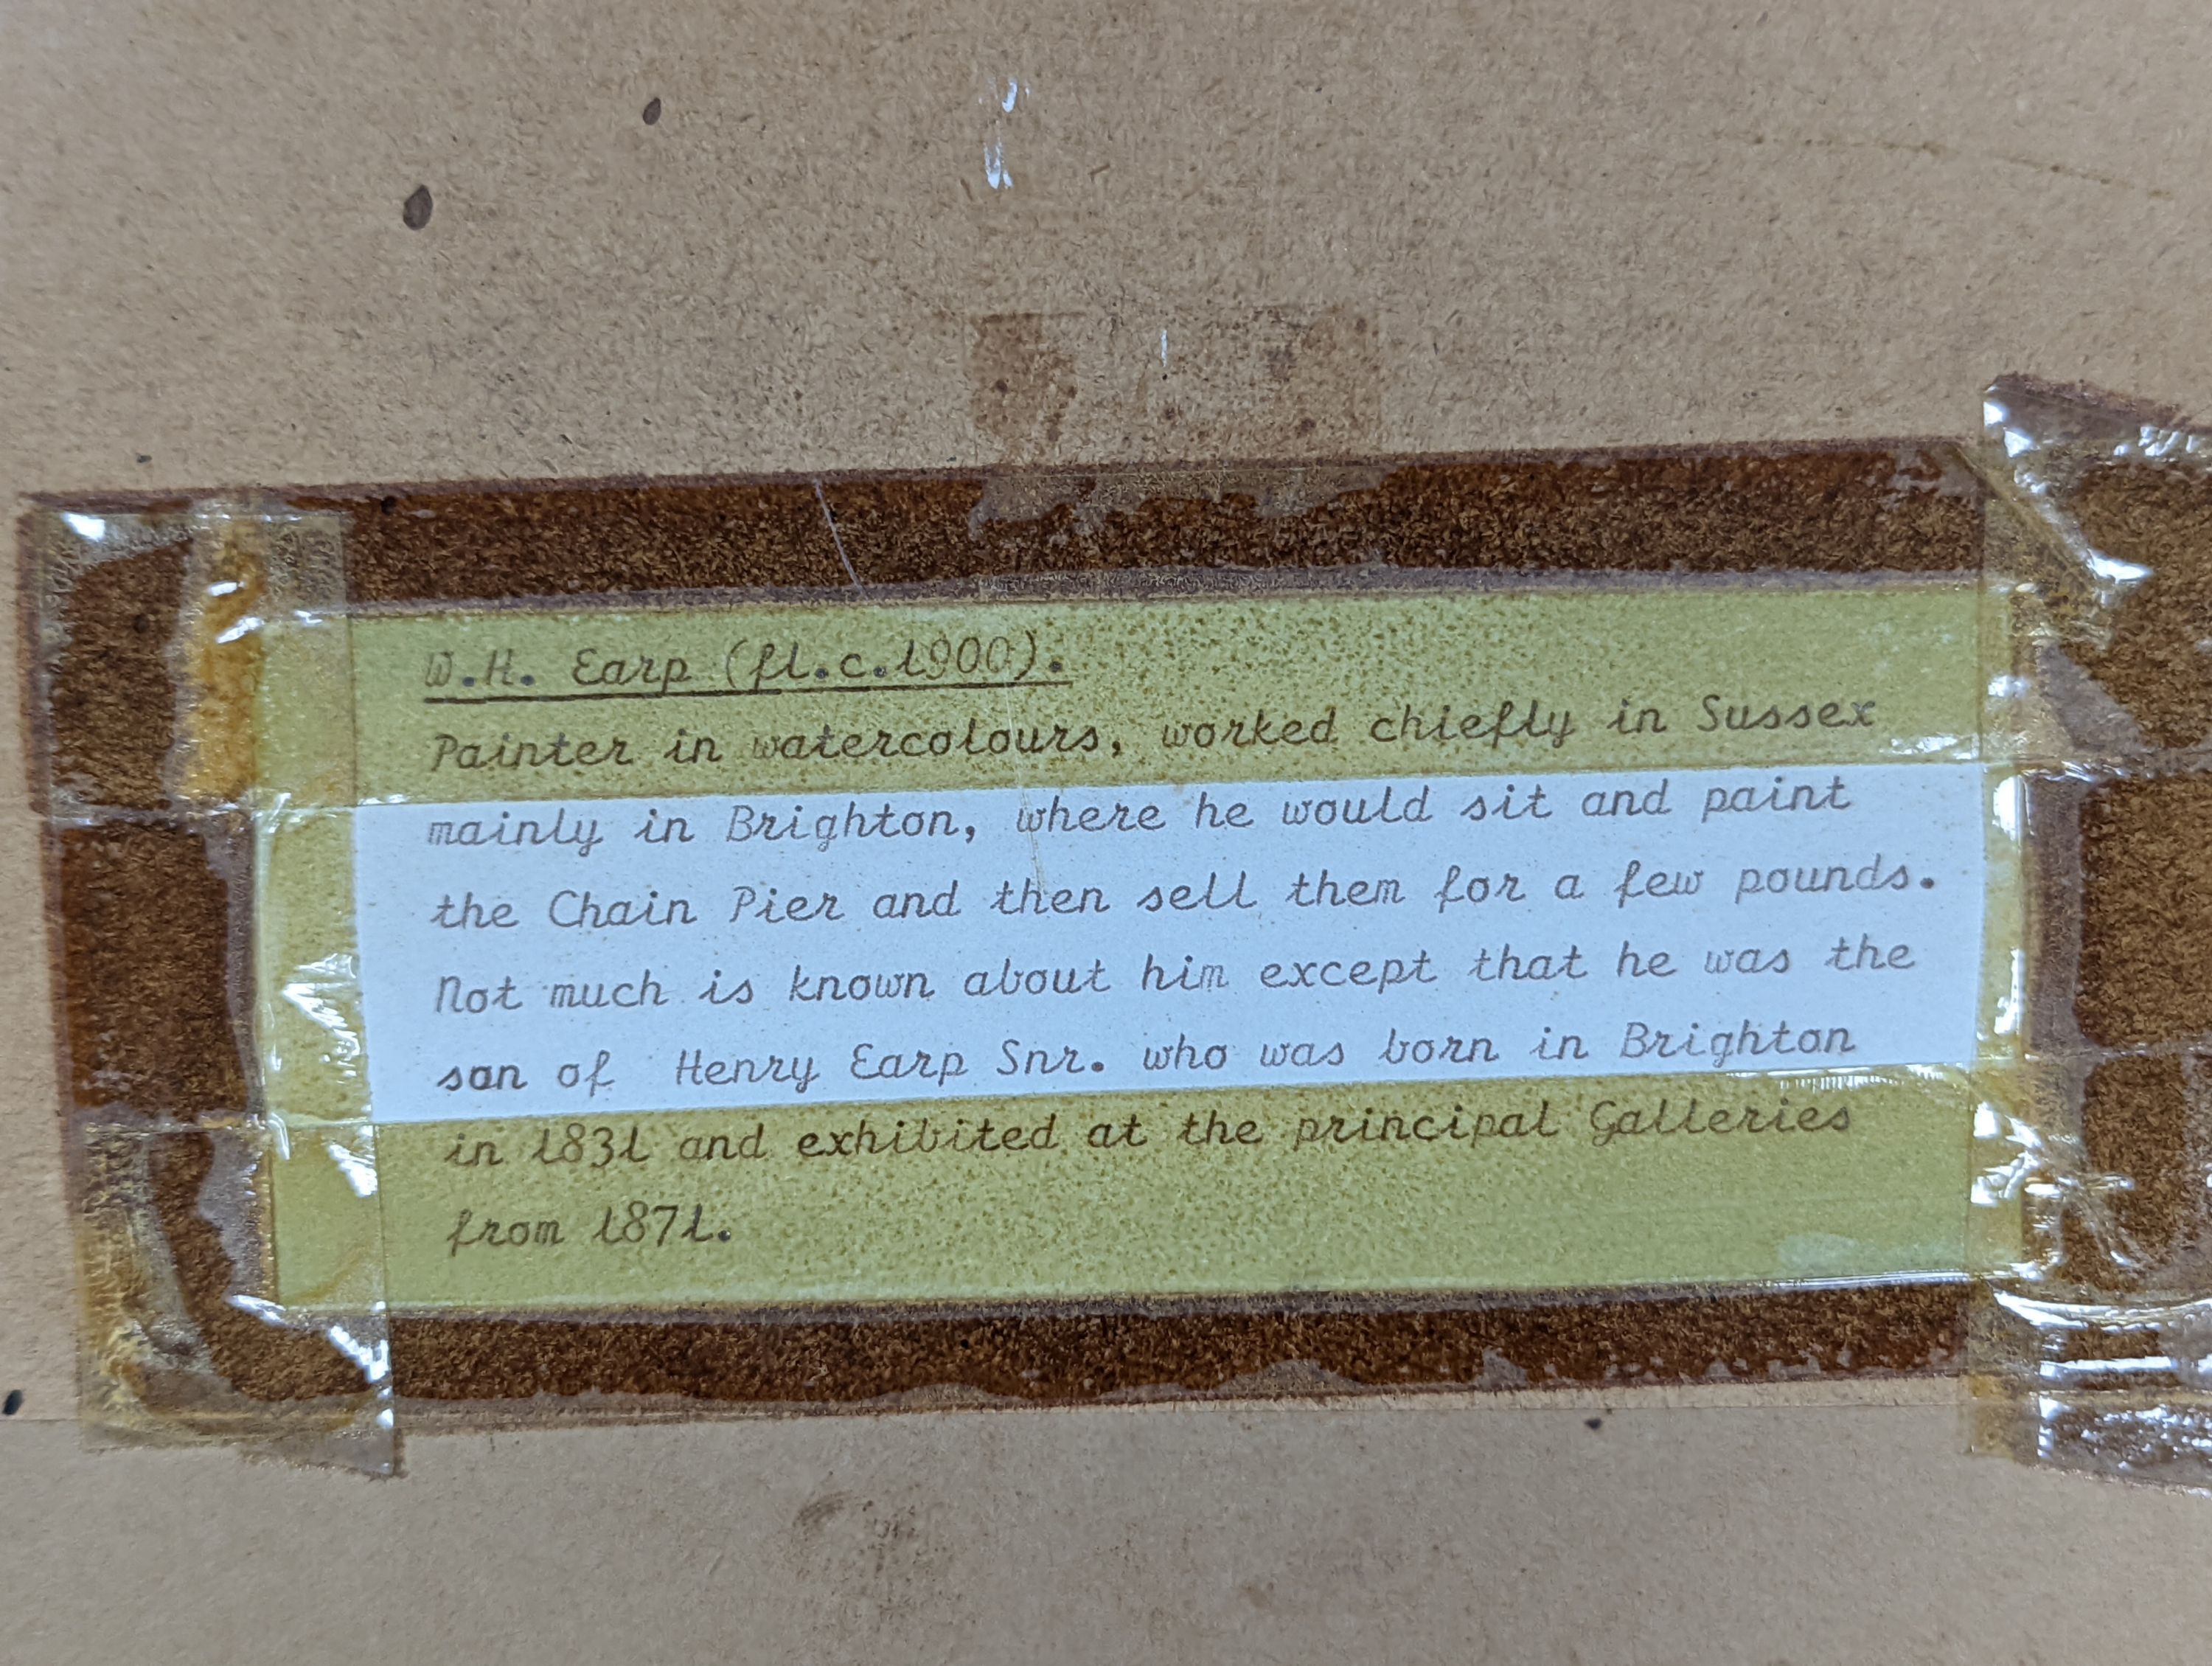 W.H. Earp (fl.c.1900).
Painter in watercolours, worked chiefly in Sussex
mainly in Brighton, where he would sit and paint
the Chain Pier and then sell them for a few pounds.
Not much is known about him except that he was the
son of Henry Earp Snr. who was born in Brighton
in 1831 and exhibited at the principal Galleries
from 1871.